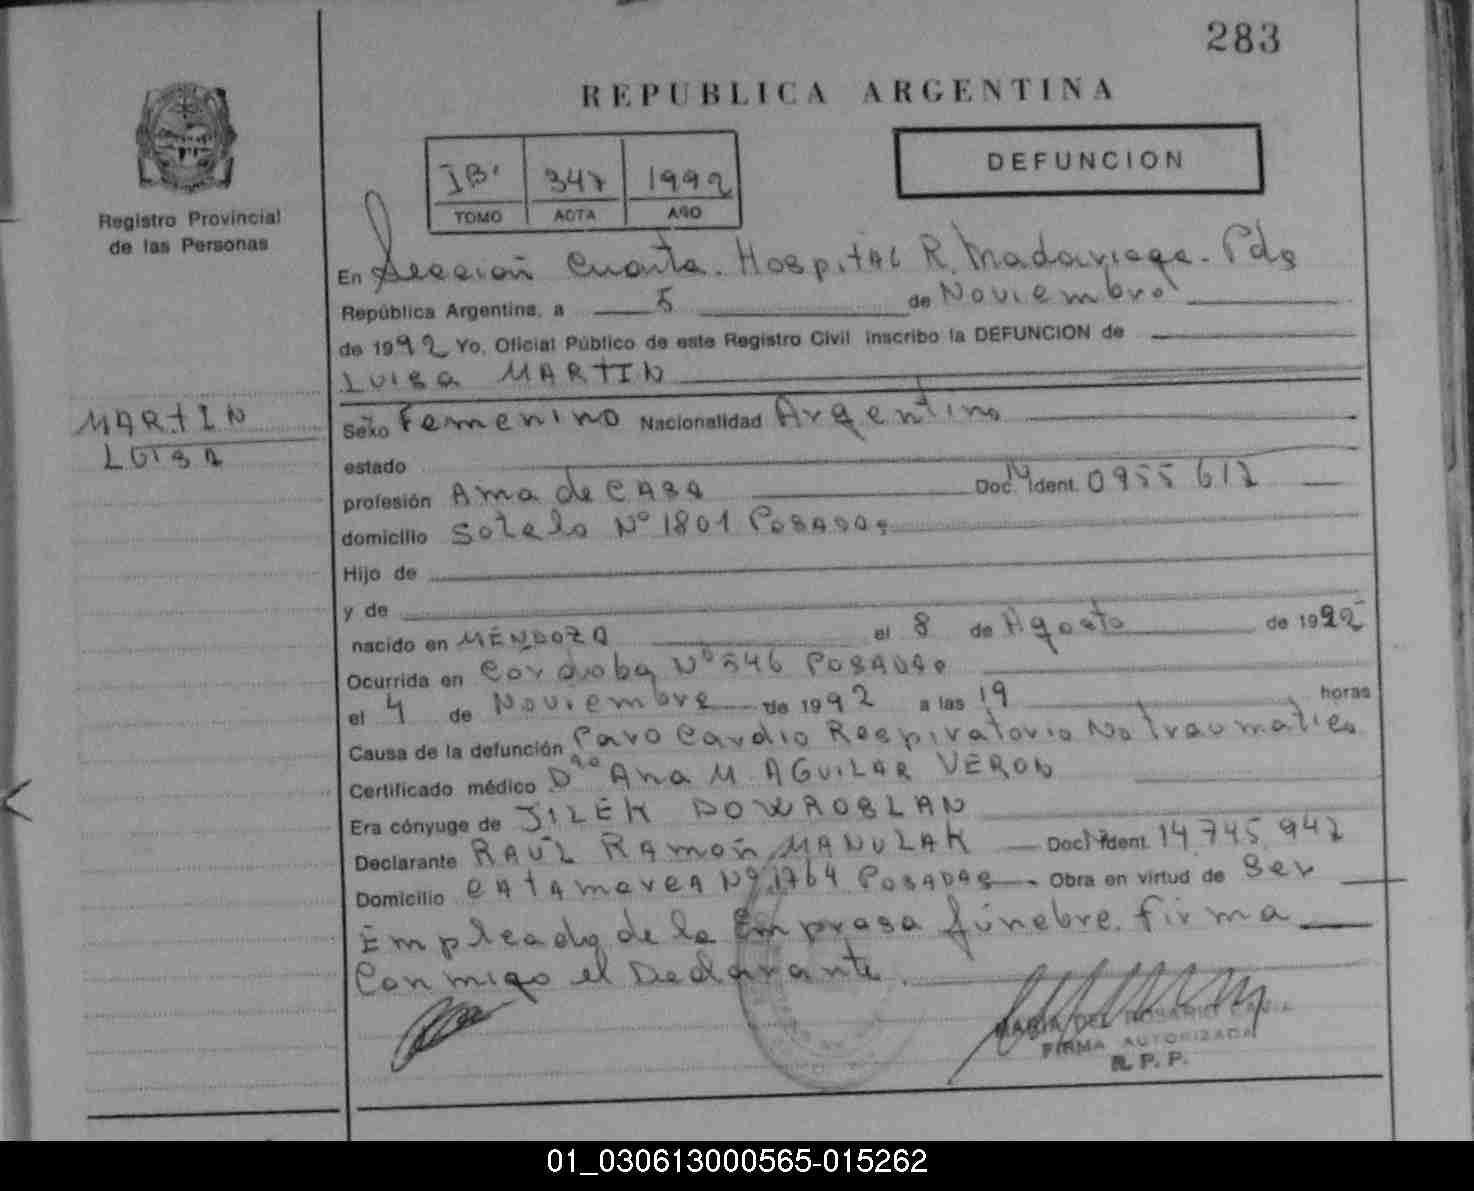 283
REPUBLICA ARGENTINA
DEFUNCION
347 1992
TOMO ACTA AÑO
Registro Provincial
de las Personas
En Sección Cuarta. Hospital R. Madariaga. Pds
República Argentina, a 5 de Noviembre
de 1992 Yo, Oficial Público de este Registro Civil inscribo la DEFUNCION de
LUISA MARTIN
MARTIN
LUISA
Sexo Femenino Nacionalidad Argentina
estado
profesión Ama de CASA Doc. Ident. 0955612
domicilio Sotelo Nº 1801 POSADAS
Hijo de
y de
nacido en MENDOZA el 8 de Agosto de 19
Ocurrida en Cordoba Nº 546 POSADAS
el 4 de Noviembre de 1992 a las 19 horas
Causa de la defunción Paro Cardio Respiratorio No Traumatico
Certificado médico Dra Ana M. AGUILAR VERON
Era cónyuge de JILEK DOWROSLAN
Declarante RAÚL RAMOÑ MANULAK Doc. Ident. 14.745.942
Domicilio CATAMARCA Nº 1764 POSADAS Obra en virtud de Ser
Empleado de la Empresa fúnebre. firma
Conmigo el Declarante.
MARIA DEL ROSARIO
FIRMA AUTORIZADA
R. P. P.
01_030613000565-015262